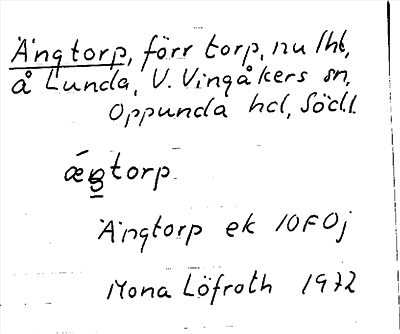 Ängtorp, förr torp, nu lht,
å Lunda, V. Vingåkers sn,
Oppunda hd, Södl.
ǽgtorp
Ängtorp ek 10F0j
Mona Löfroth 1972